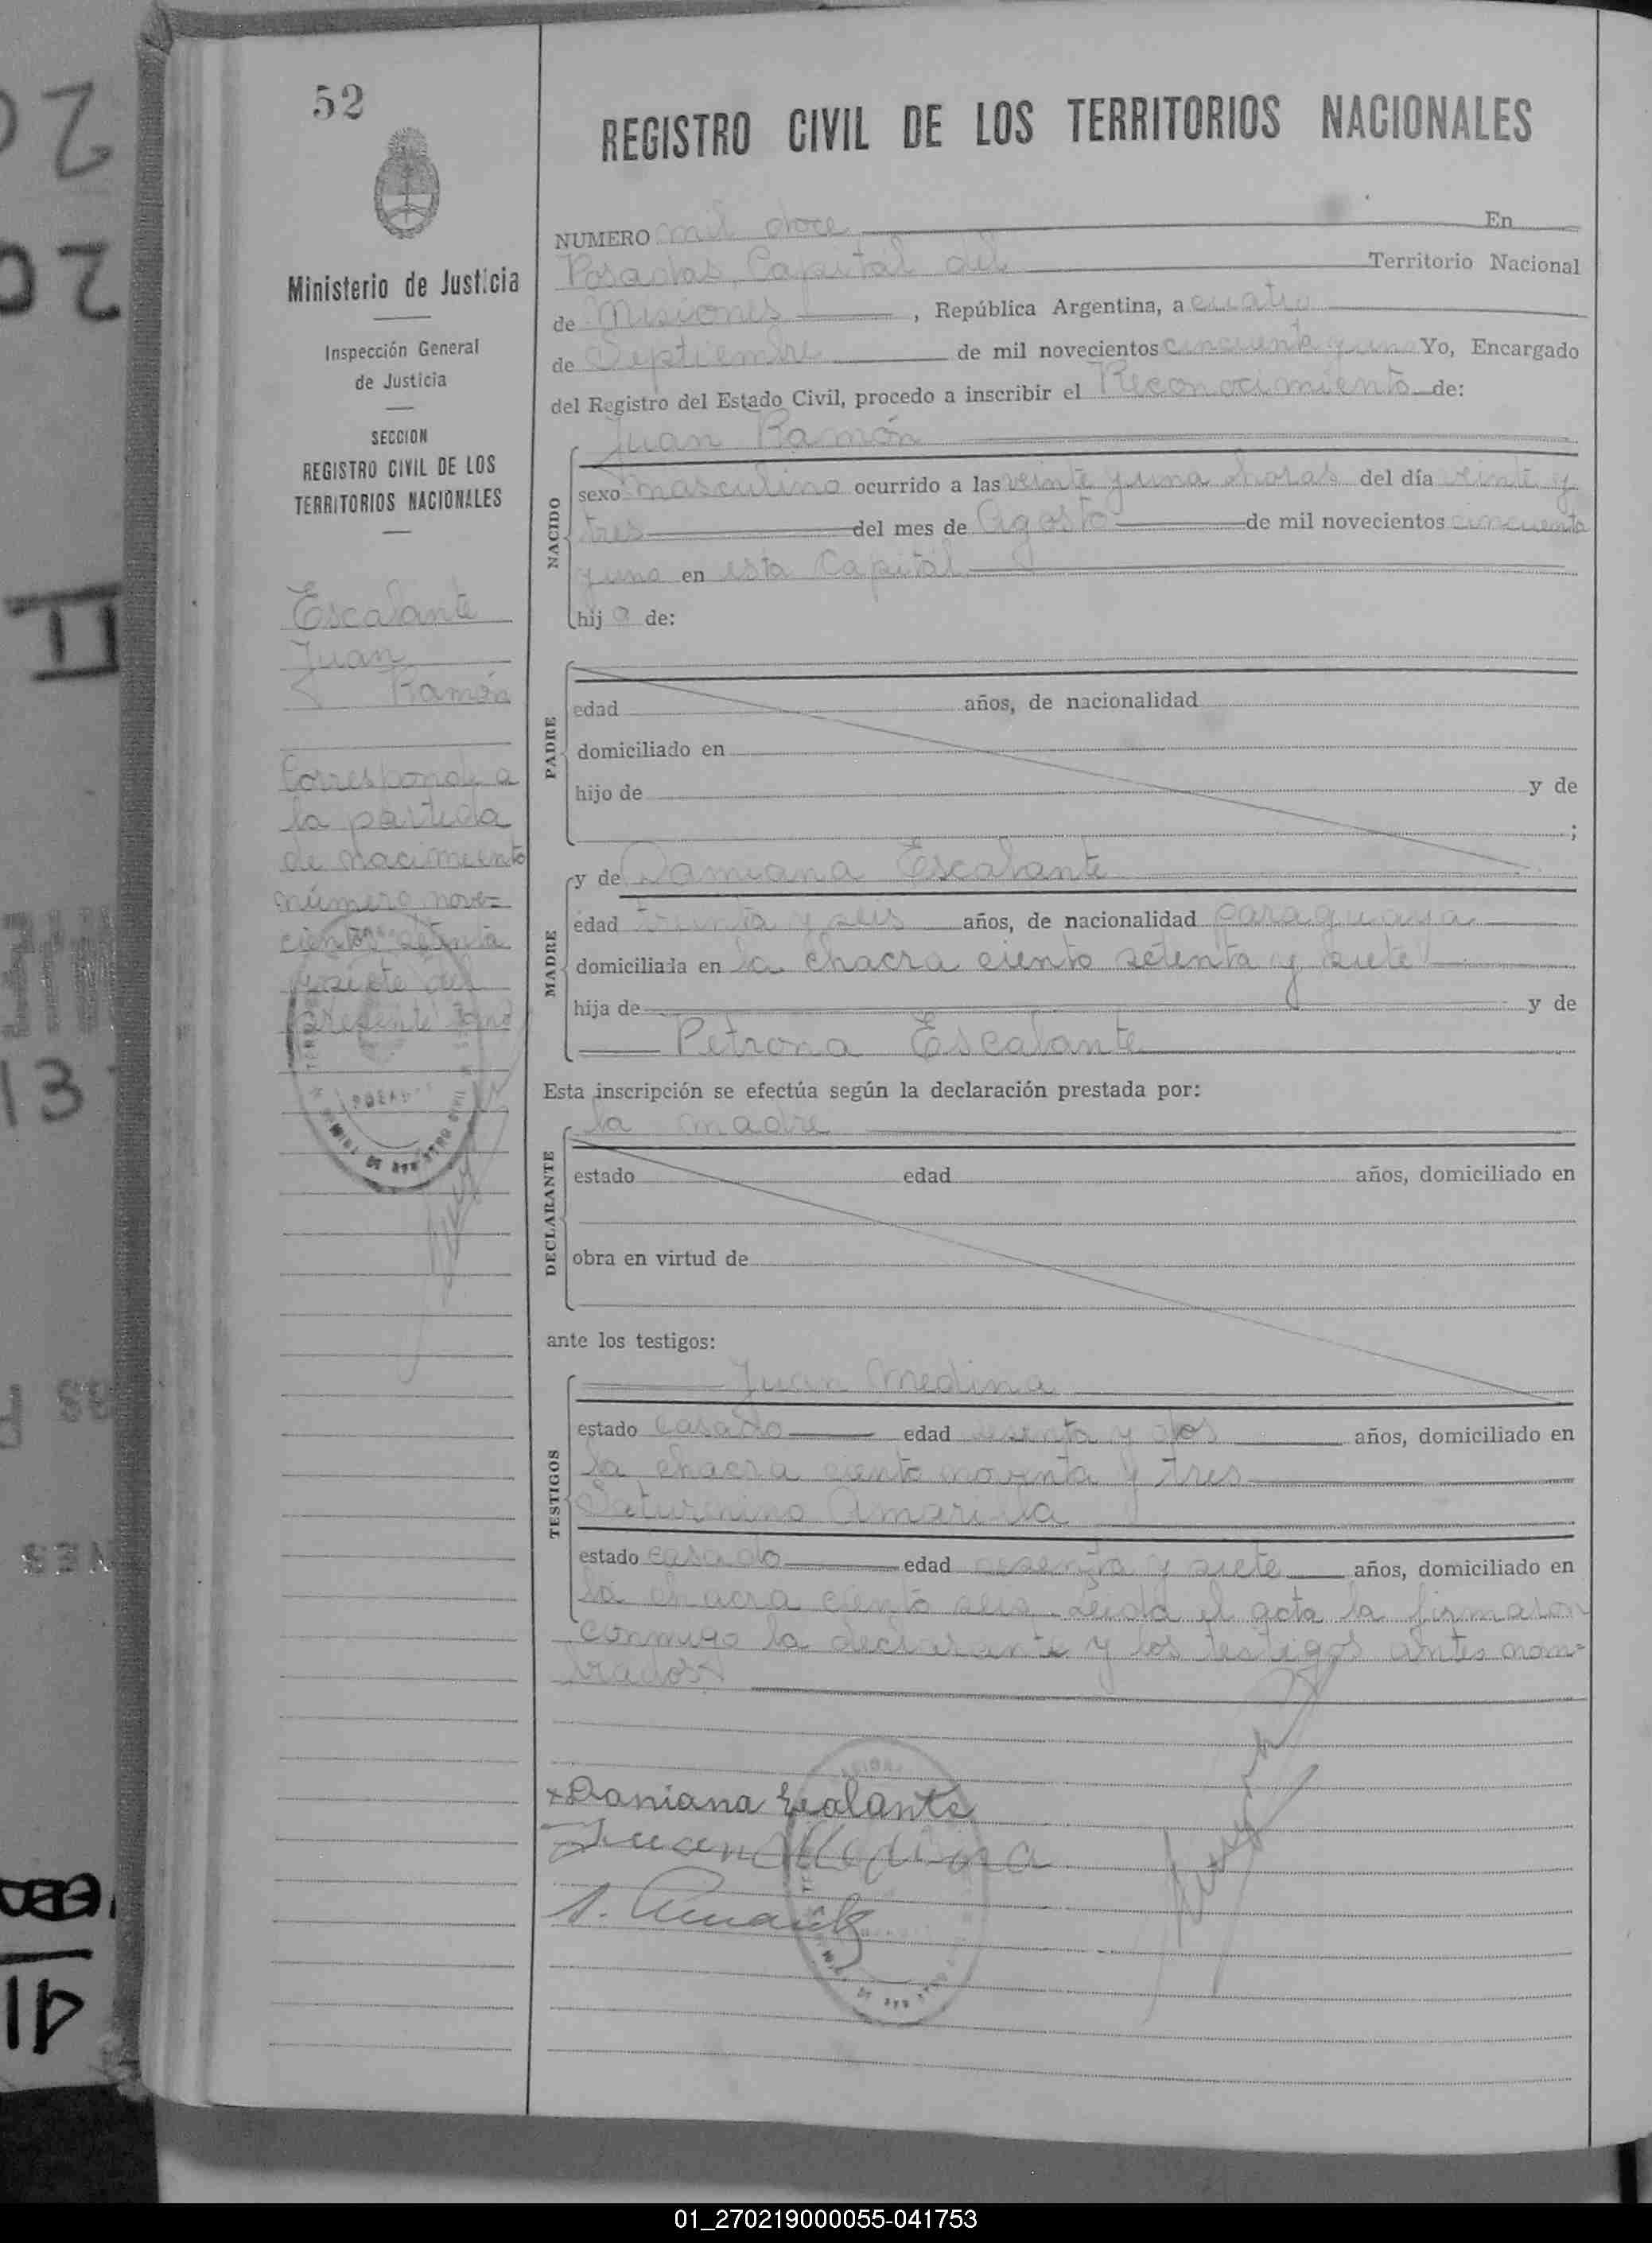 52
REGISTRO CIVIL DE LOS TERRITORIOS NACIONALES
Ministerio de Justicia
Inspección General
de Justicia
SECCION
REGISTRO CIVIL DE LOS
TERRITORIOS NACIONALES
Escalante
Juan
Ramón
Corresponde a
la partida
de nacimiento
número nove=
cientos setenta
y siete del
presente año
NUMERO mil doce En
Posadas, Capital del Territorio Nacional
de Misiones, República Argentina, a cuatro
de Septiembre de mil novecientos cincuenta y uno Yo, Encargado
del Registro del Estado Civil, procedo a inscribir el Reconocimiento de:
Juan Ramón
NACIDO
sexo masculino ocurrido a las veinte y una horas del día veinte y
tres del mes de Agosto de mil novecientos cincuenta
y uno en esta Capital
hijo de:
PADRE
edad años, de nacionalidad
domiciliado en
hijo de y de
;
MADRE
y de Damiana Escalante
edad treinta y seis años, de nacionalidad paraguaya
domiciliada en la chacra ciento setenta y siete
hija de y de
Petrona Escalante
Esta inscripción se efectúa según la declaración prestada por:
la madre
DECLARANTE
estado edad años, domiciliado en
obra en virtud de
ante los testigos:
TESTIGOS
Juan Medina
estado casado edad sesenta y dos años, domiciliado en
la chacra ciento noventa y tres
Saturnino Amarilla
estado casado edad sesenta y siete años, domiciliado en
la chacra ciento seis. Leída el acta la firmaron
conmigo la declarante y los testigos antes nom=
brados
Damiana Escalante
Juan Medina
S. Amarilla
01_270219000055-041753